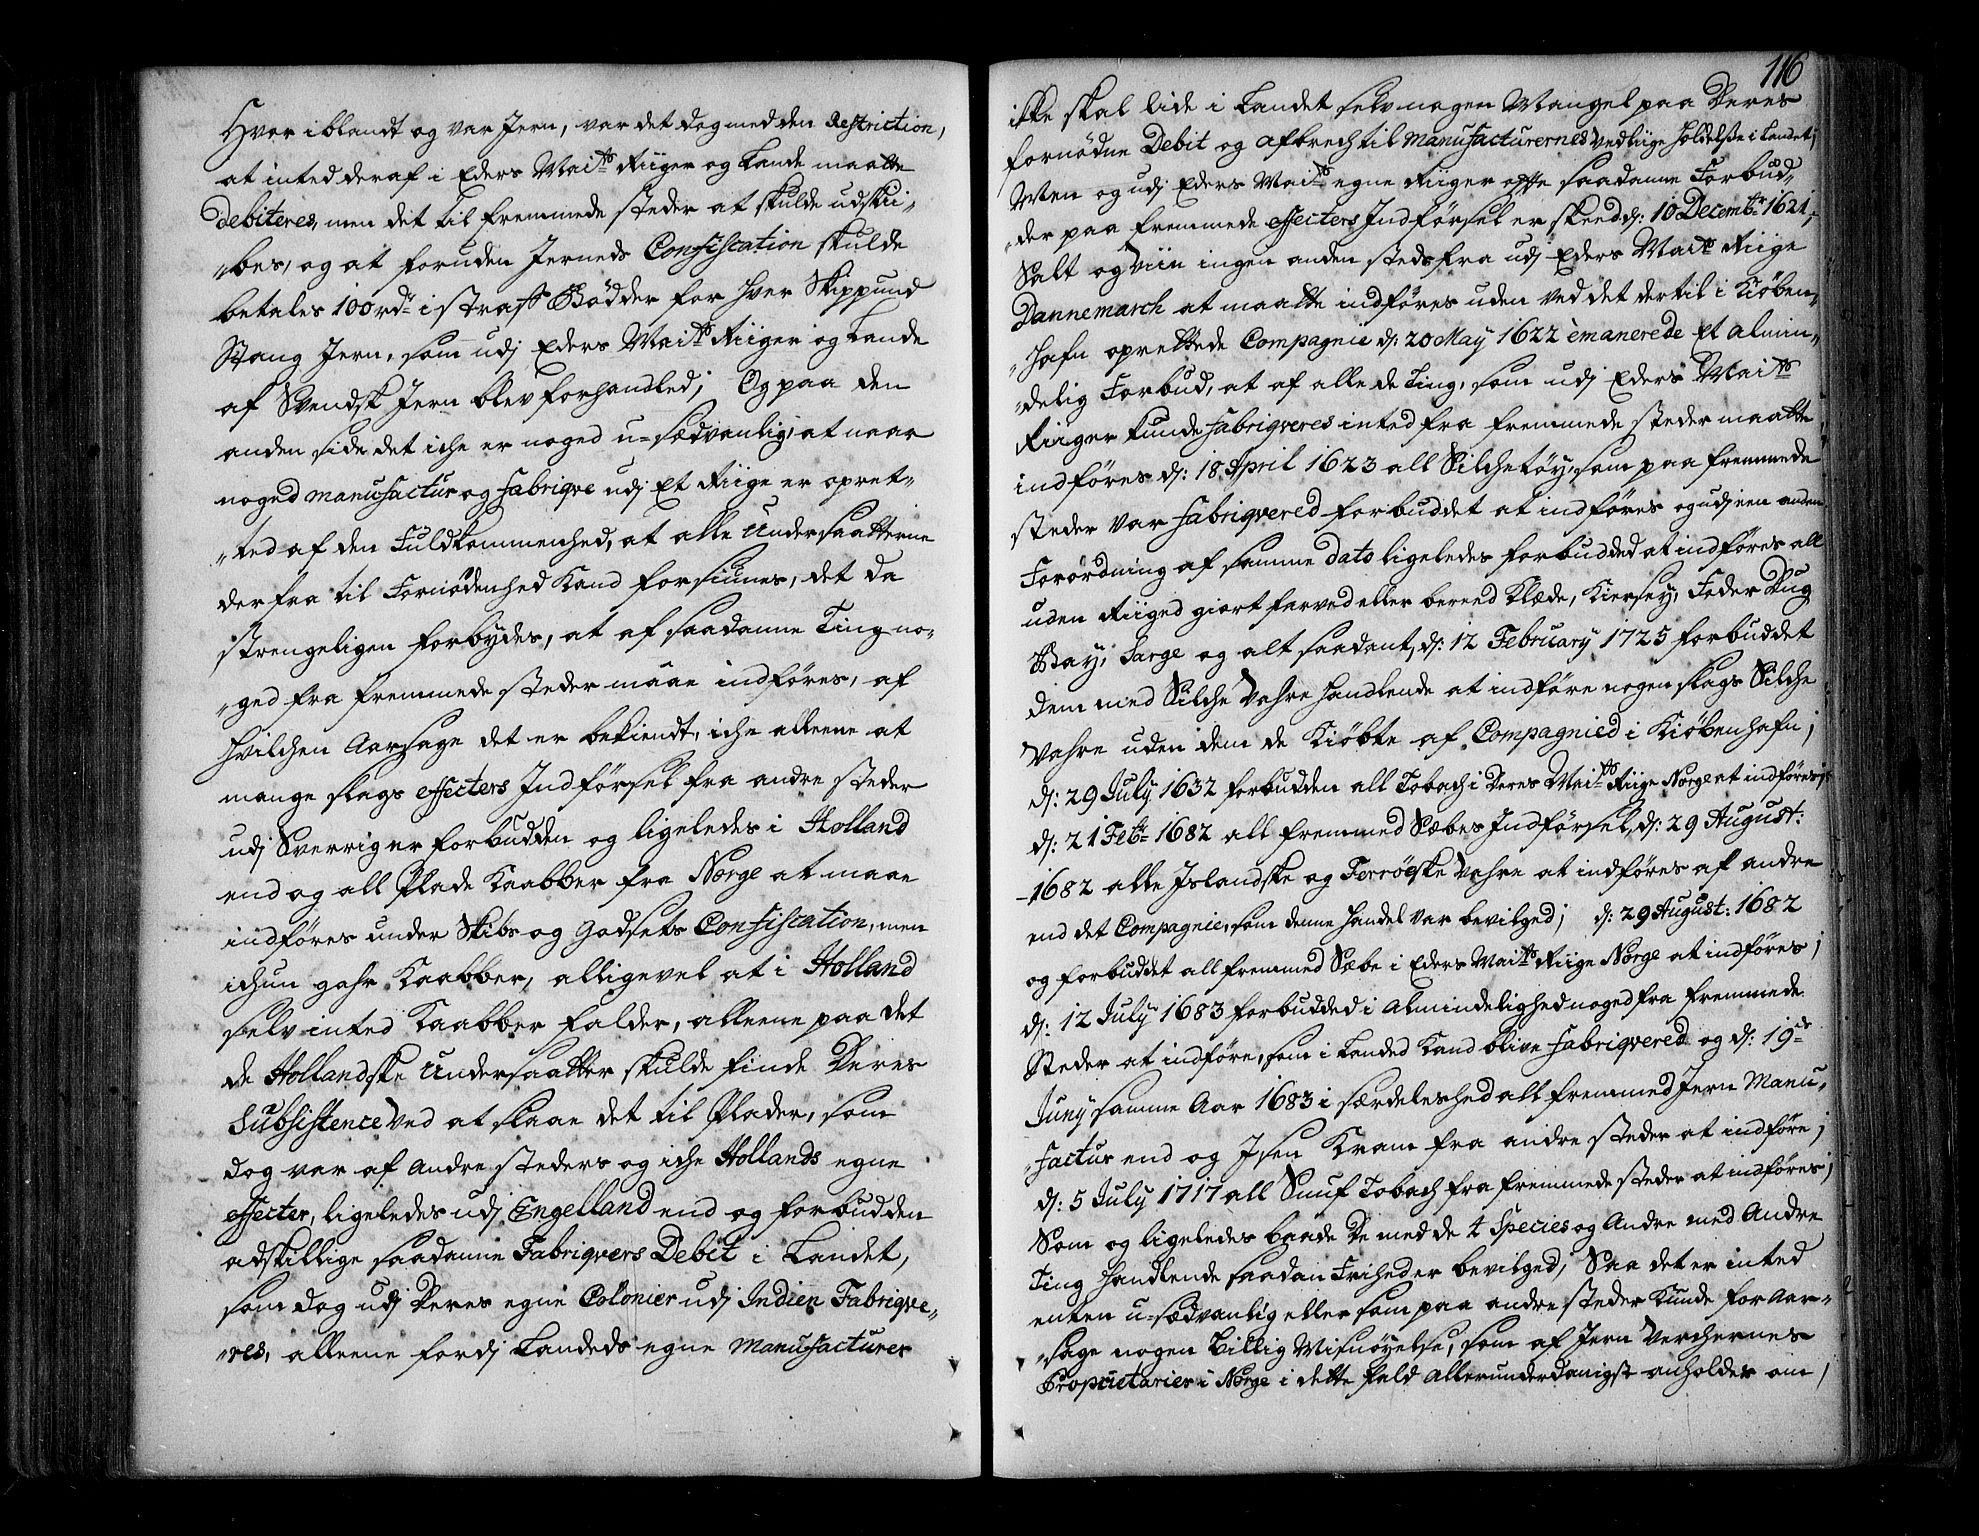 Hvor iblandt og var Jern, var det dog med den Restriction,
at inted deraf i Eders Maits Riiger og Lande maatte
debiteres, men det til fremmede steder at skulde udskii-
"bes, og at foruden Jerneds Confiscation skulde
betales 100 rdr i straff Bødder for hver Skippund
Stang Jern, som udj Eders Maits Riiger og Lande
af Svendsk Jern blev forhandled; Og paa den
anden side det iche er noged u=sædvanlig, at naar
noged manufactur og fabriqve udj Et Riige er opret-
"ted af den Fuldkommenhed, at alle Undersaatterne
derfra til Fornødenhed Kand forsiunes, det da
strengeligen forbydes, at af saadanne Ting no-
"ged fra fremmede steder maae indføres, af
hvilchen Aarsage det er bekiendt, iche alleene at
mange slags effecters Indførsel fra andre steder
udj Sverrig er forbudden og ligeledes i Holland
end og all Plade Kaabber fra Norge at maae
indføres under Skibs og Godsets Confiscation, men
ichun gahr Kaabber, alligevel at i Holland
selv inted Kaabber falder, alleene paa det
de Hollandske Undersaatter skulde finde Deres
Subsistence ved at slaae det til Plader, som
dog var af andre steders og iche Hollands egne
effecter, ligeledes udj Engelland end og forbudden
adskillige saadanne Fabriqvers Debit i Landet,
som dog udj Deres egne Colonier udj Indien Fabriqve-
"res, alleene fordj Landeds egne Manufacturer
116
ikke skal lide i Landet selv nogen Mangel paa Deres
fornødne Debit og afbrech til Manufacturernes Vedliige holdelsse i Landet;
Men og udj Eders Maits egne Riiger ofte saadanne Forbud-
"der paa fremmede effecters Indførsel er skeed d: 10 Decembr 1621,
Salt og Viin ingen anden steds fra udj Eders Maits Riige
Dannemarch at maatte indføres uden ved det dertil i Kiøben-
"hafn oprettede Compagnie d: 20 May 1622 emanerede Et almin-
"delig Forbud, at af alle de Ting, som udj Eders Maits
Riiger kunde fabriqveres inted fra fremmede steder maatte
indføres d: 18 April 1623 all Silchetøy, som paa fremmede
steder var fabriqvered forbuddet at indføres og udj een anden
Forordning af samme dato ligeledes forbudded at indføres all
uden Riiged giort farved eller bereed Klæde, Kiersey, Foder Dug
Bay, Sarge og alt saadant, d: 12 February 1725 forbuddet
dem med Silche Vahre handlende at indføre nogen slags Silche
Vahre uden dem de Kiøbte af Compagnied i Kiøbenhafn;
d: 29 July 1632 forbudden all Tobach i Deres Maits Riige Norge at indføres;
d: 21 Febr 1682 all fremmed Sæbes Indførsel, d: 29 August:
-1682 alle Islandske og Ferrøeske Vahre at indføres af andre
end det Compagnie, som denne handel var bevilged; d: 29 August: 1682
og forbuddet all fremmed Sæbe i Eders Maits Riige Norge at indføres;
d: 12 July 1683 forbudded i Almindelighed noged fra fremmede
Steder at indføre, som i Landed Kand blive fabriqvered og d: 19de
Juny samme Aar 1683 i særdeleshed all fremmed Jern Manu-
"factur end og Isen Kram fra andre steder at indføre;
d: 5 July 1717 all Snuf Tobach fra fremmede steder at indføres;
Som og ligeledes baade De med de 4 Species og Andre med Andre
Ting handlende saadan Friheder bevilged, Saa det er inted
enten u=sædvanlig eller som paa andre steder kunde for Aar-
"sage nogen billig Misnøyelse, som af Jern Verchernes
Proprietarier i Norge i dette fald allerunderdanigst anholdes om,